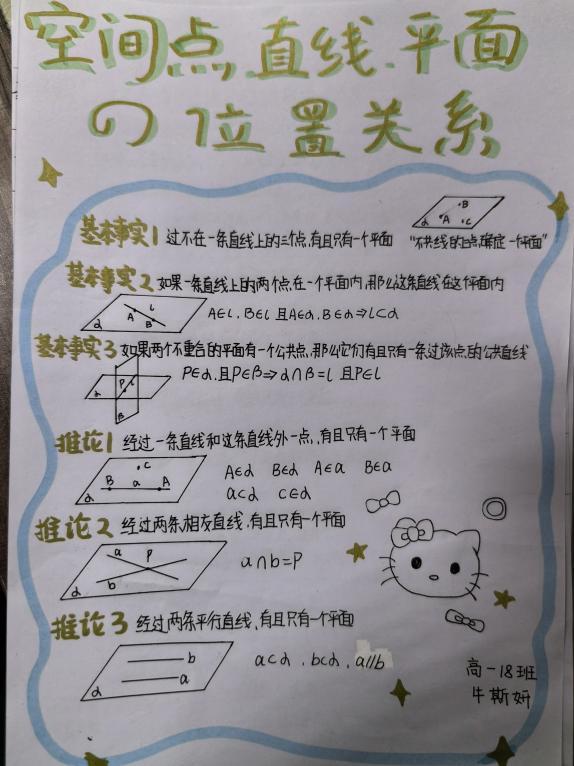 空间点、直线、平面
の位置关系
α A B C
基本事实1 过不在一条直线上的三个点,有且只有一个平面 "不共线的三点确定一个平面"
基本事实2 如果一条直线上的两个点在一个平面内,那么这条直线在这个平面内
α A B l A∈l,B∈l 且A∈α,B∈α⇒l⊂α
基本事实3 如果两个不重合的平面有一个公共点,那么它们有且只有一条过该点的公共直线
α P l β P∈α,且P∈β⇒α∩β=l 且P∈l
推论1 经过一条直线和这条直线外一点,有且只有一个平面
α B a A C A∈α B∈α A∈a B∈a
a⊂α C∈α
推论2 经过两条相交直线,有且只有一个平面
α a P b a∩b=P
推论3 经过两条平行直线,有且只有一个平面
α b a a⊂α,b⊂α,a//b
高一18班
牛斯妍